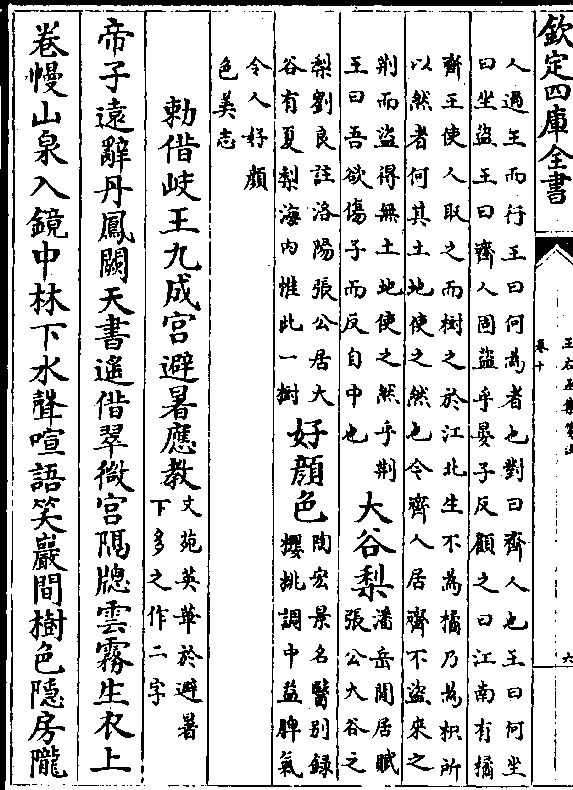 欽定四庫全書
王右丞集箋注
卷十
六
人過王而行王曰何為者也對曰齊人也王曰何坐
曰坐盜王曰齊人固盜乎晏子反顧之曰江南有橘
齊王使人取之而樹之於江北生不為橘乃為枳所
以然者何其土地使之然也令齊人居齊不盜來之
荆而盜得無土地使之然乎荆
王曰吾欲傷子而反自中也
大谷梨
潘岳閒居賦
張公大谷之
梨劉良註洛陽張公居大
谷有夏梨海内惟此一樹
好顔色
陶宏景名醫别録
櫻桃調中益脾氣
令人好顔
色美志
勅借岐王九成宫避暑應教
文苑英華於避暑
下多之作二字
帝子遠辭丹鳳闕天書遙借翠微宫隔牕雲霧生衣上
卷幔山泉入鏡中林下水聲喧語笑巖間樹色隱房隴